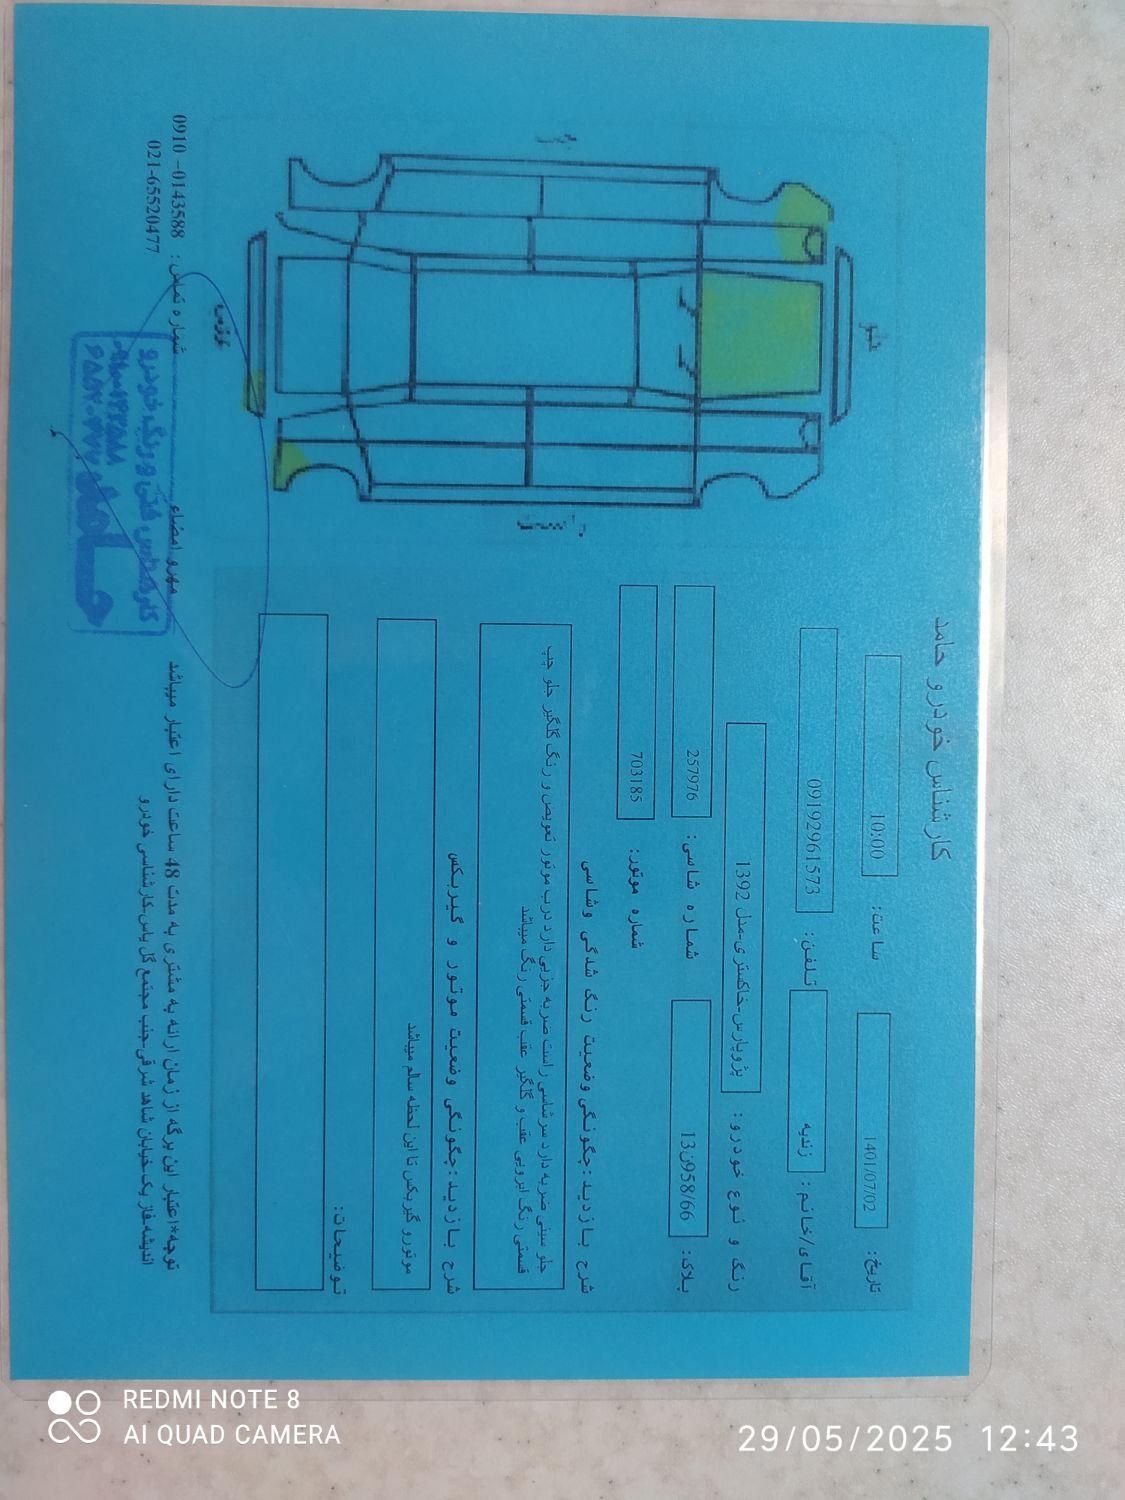 کارشناس خودرو حامد
تاریخ: 1401/07/02 ساعت: 10:00
آقای/خانم: زندیه تلفن: 09192961573
رنگ و نوع خودرو: پژوپارس-خاکستری-مدل 1392
پلاک: 66/958ن13 شماره شاسی: 257976
شماره موتور: 703185
شرح بازدید: چگونگی وضعیت رنگ شدگی وشاسی
جلو سینی ضربه دارد سرشاسی راست ضربه جزیی دارد درب موتور تعویض و رنگ گلگیر جلو چپ
قسمتی رنگ ابرویی عقب و گلگیر عقب قسمتی رنگ میباشد
شرح بازدید: چگونگی وضعیت موتور و گیربکس
موتورو گیربکس تا این لحظه سالم میباشد
توضیحات:
جلو
چپ
راست
عقب
شماره تماس: 0910-0143588
021-65520477
مهرو امضاء
کارشناس فنی و رنگ خودرو
توجه*اعتبار این برگه از زمان ارائه به مشتری به مدت 48 ساعت دارای اعتبار میباشد
اندیشه-فاز یک-خیابان شاهد شرقی-جنب مجتمع گل یاس-کارشناسی خودرو
REDMI NOTE 8
AI QUAD CAMERA
29/05/2025 12:43